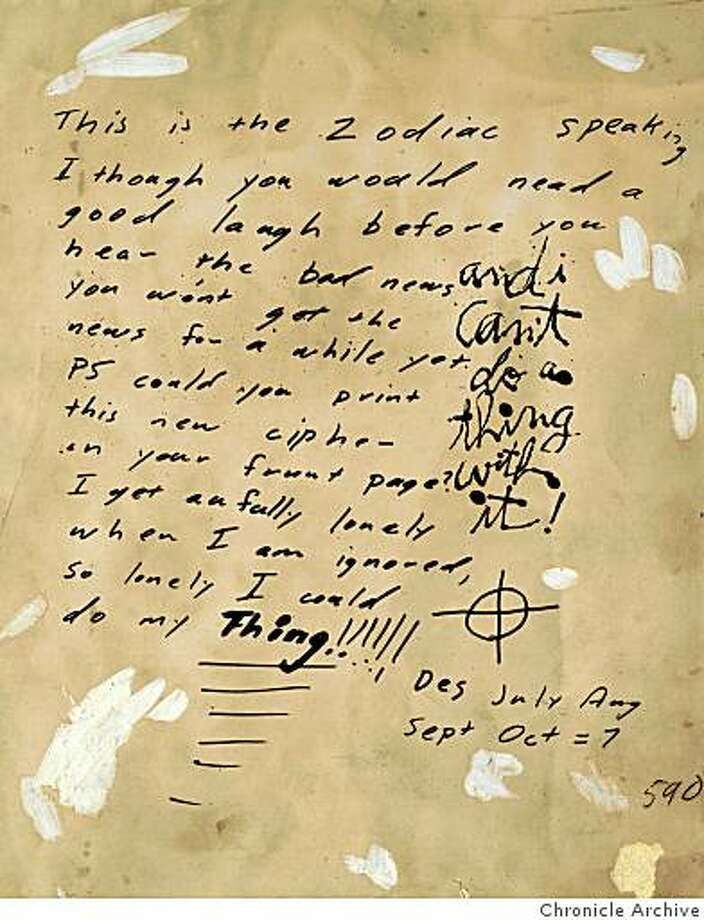 This is the Zodiac speaking
I though you would nead a
good laugh before you
hear the bad news
you won't get the
news for a while yet
PS could you print
this new cipher
on your frunt page?
I get awfully lonely
when I am ignored,
so lonely I could
do my Thing!!!!!!
and i
Can't
do a
thing
with
it!
Des July Aug
Sept Oct = 7
590
Chronicle Archive